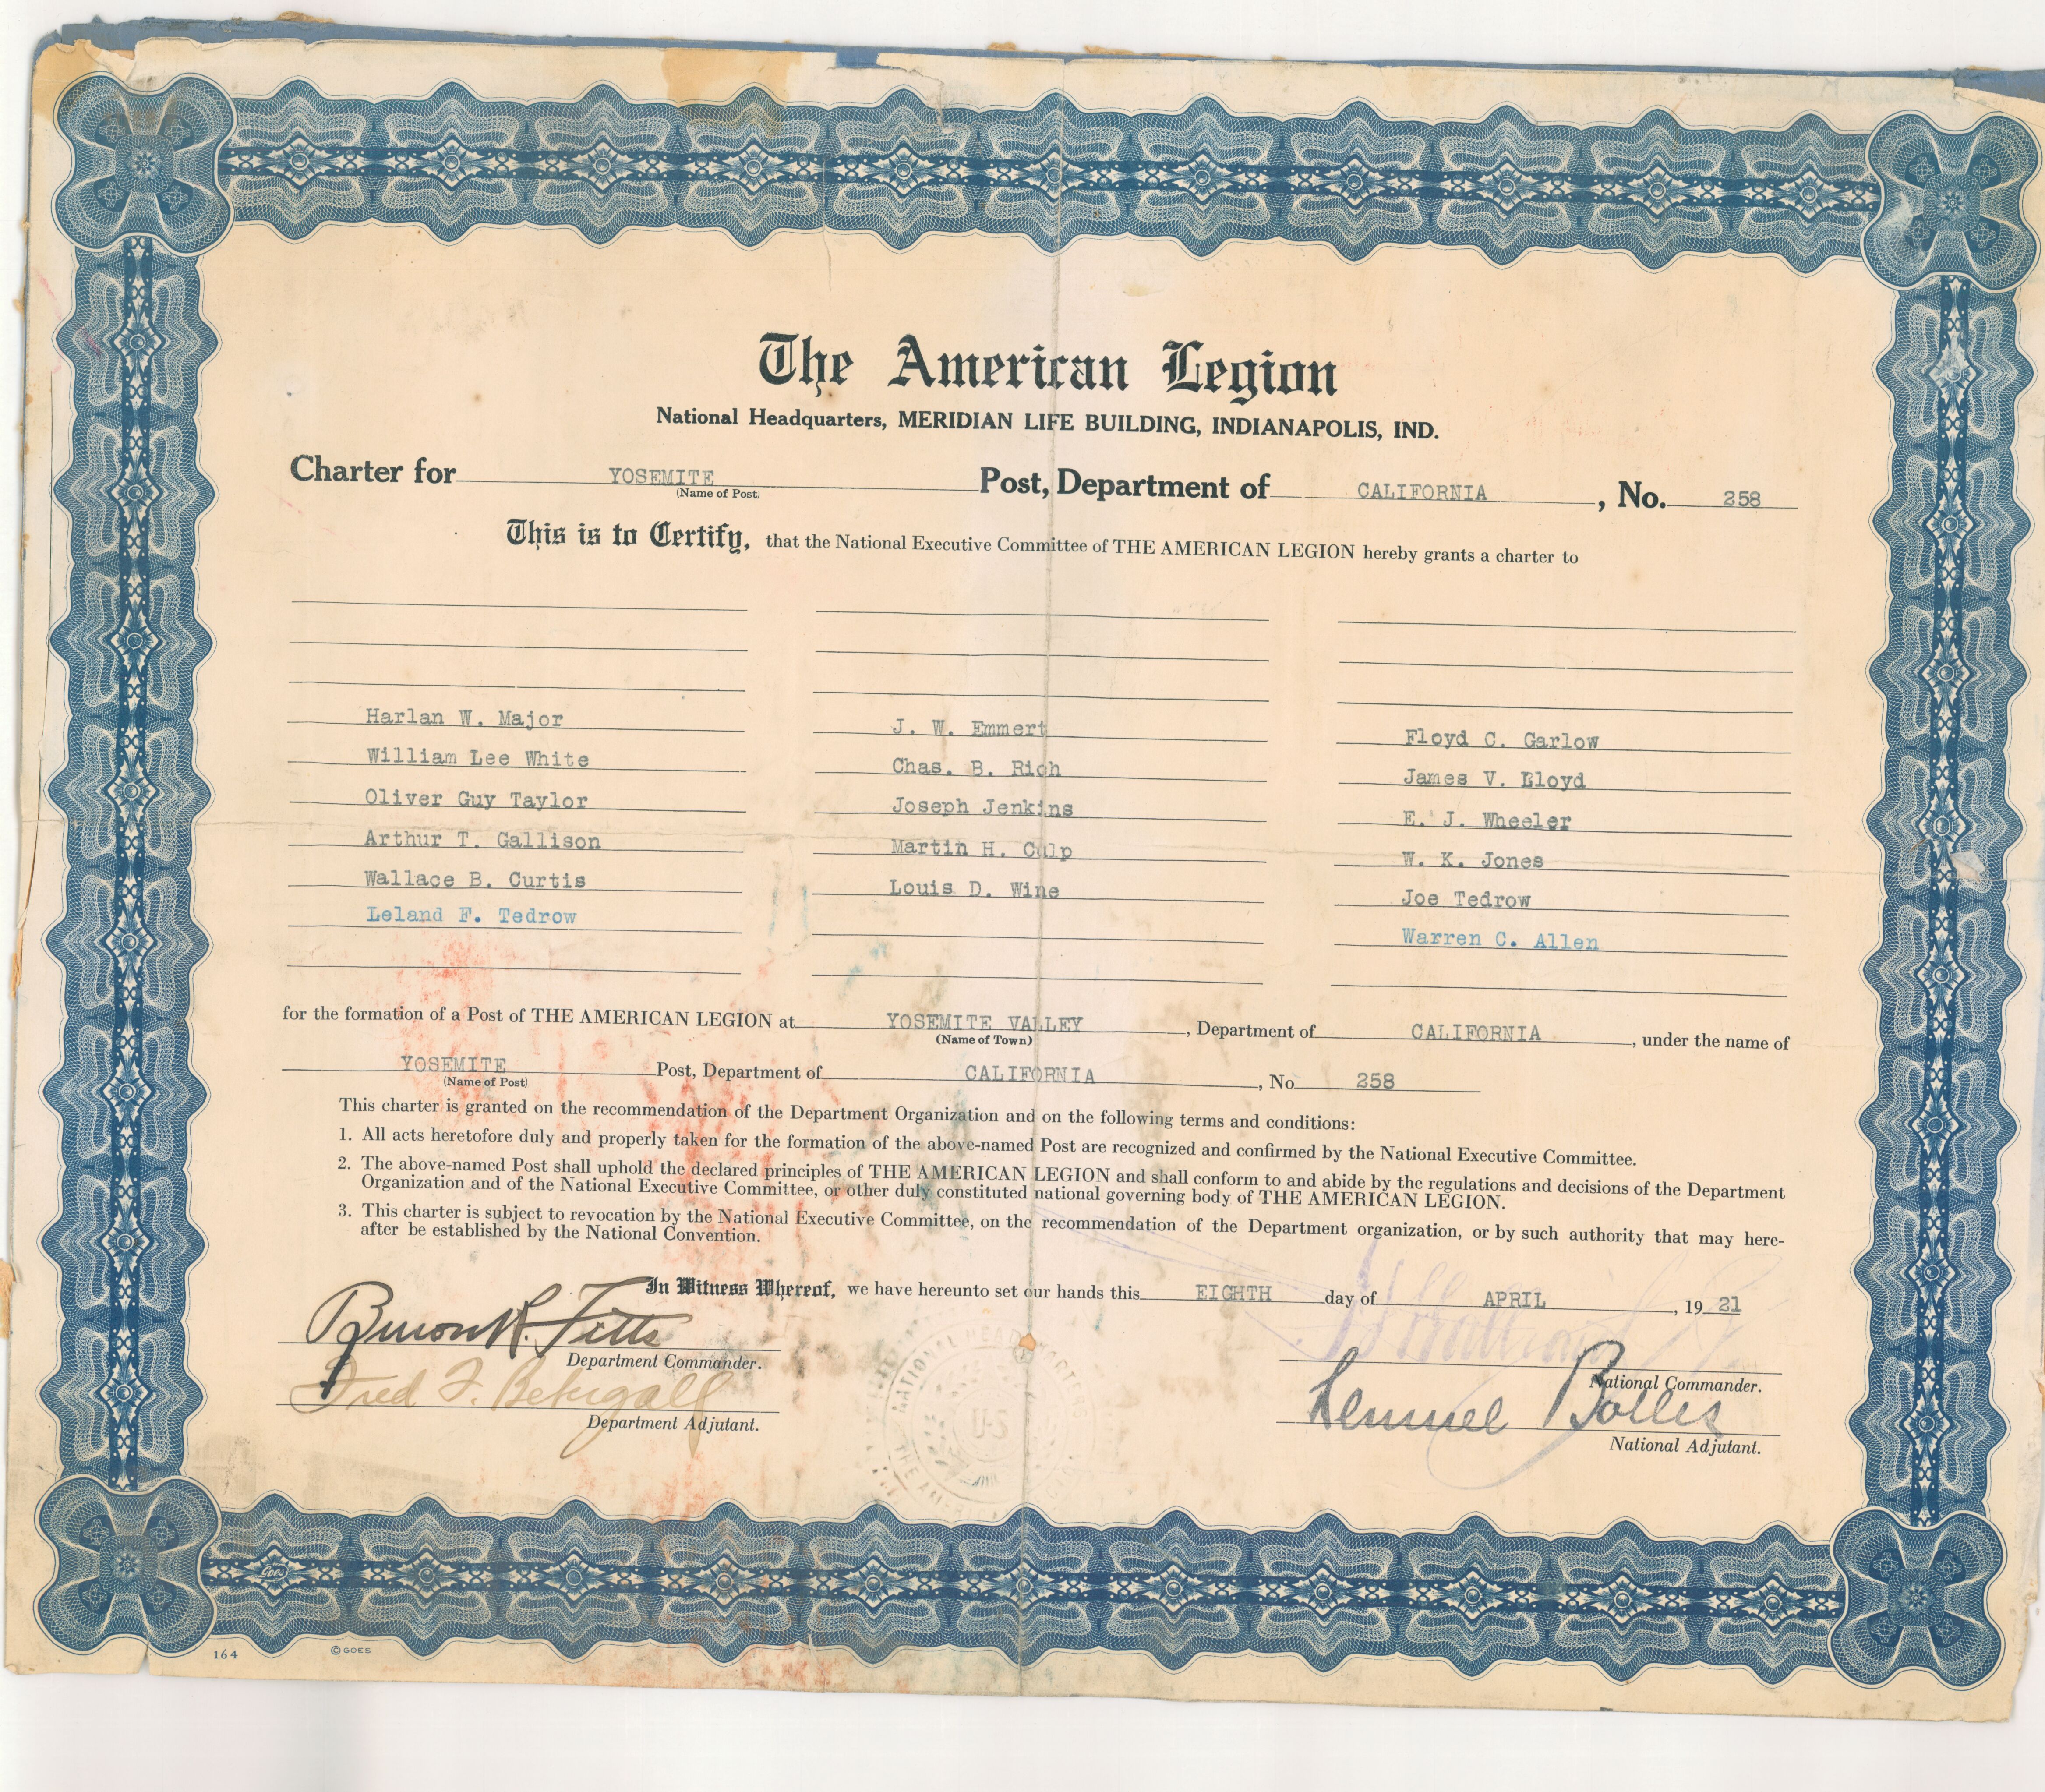 The American Legion
National Headquarters, MERIDIAN LIFE BUILDING, INDIANAPOLIS, IND.
Charter for YOSEMITE Post, Department of CALIFORNIA, No. 258
(Name of Post)
This is to Certify, that the National Executive Committee of THE AMERICAN LEGION hereby grants a charter to
Harlan W. Major J. W. Emmert Floyd C. Garlow
William Lee White Chas. B. Rich James V. Lloyd
Oliver Guy Taylor Joseph Jenkins E. J. Wheeler
Arthur T. Gallison Martin H. Culp W. K. Jones
Wallace B. Curtis Louis D. Wine Joe Tedrow
Leland F. Tedrow Warren C. Allen
for the formation of a Post of THE AMERICAN LEGION at YOSEMITE VALLEY, Department of CALIFORNIA, under the name of
(Name of Town)
YOSEMITE Post, Department of CALIFORNIA, No 258
(Name of Post)
This charter is granted on the recommendation of the Department Organization and on the following terms and conditions:
1. All acts heretofore duly and properly taken for the formation of the above-named Post are recognized and confirmed by the National Executive Committee.
2. The above-named Post shall uphold the declared principles of THE AMERICAN LEGION and shall conform to and abide by the regulations and decisions of the Department
Organization and of the National Executive Committee, or other duly constituted national governing body of THE AMERICAN LEGION.
3. This charter is subject to revocation by the National Executive Committee, on the recommendation of the Department organization, or by such authority that may here-
after be established by the National Convention.
In Witness Whereof, we have hereunto set our hands this EIGHTH day of APRIL, 19 21
Buron R. Fitts
Department Commander.
National Commander.
Fred F. Lemuel Bolles
Department Adjutant.
National Adjutant.
NATIONAL HEADQUARTERS
U·S
THE AMERICAN LEGION
Goes
164 © GOES